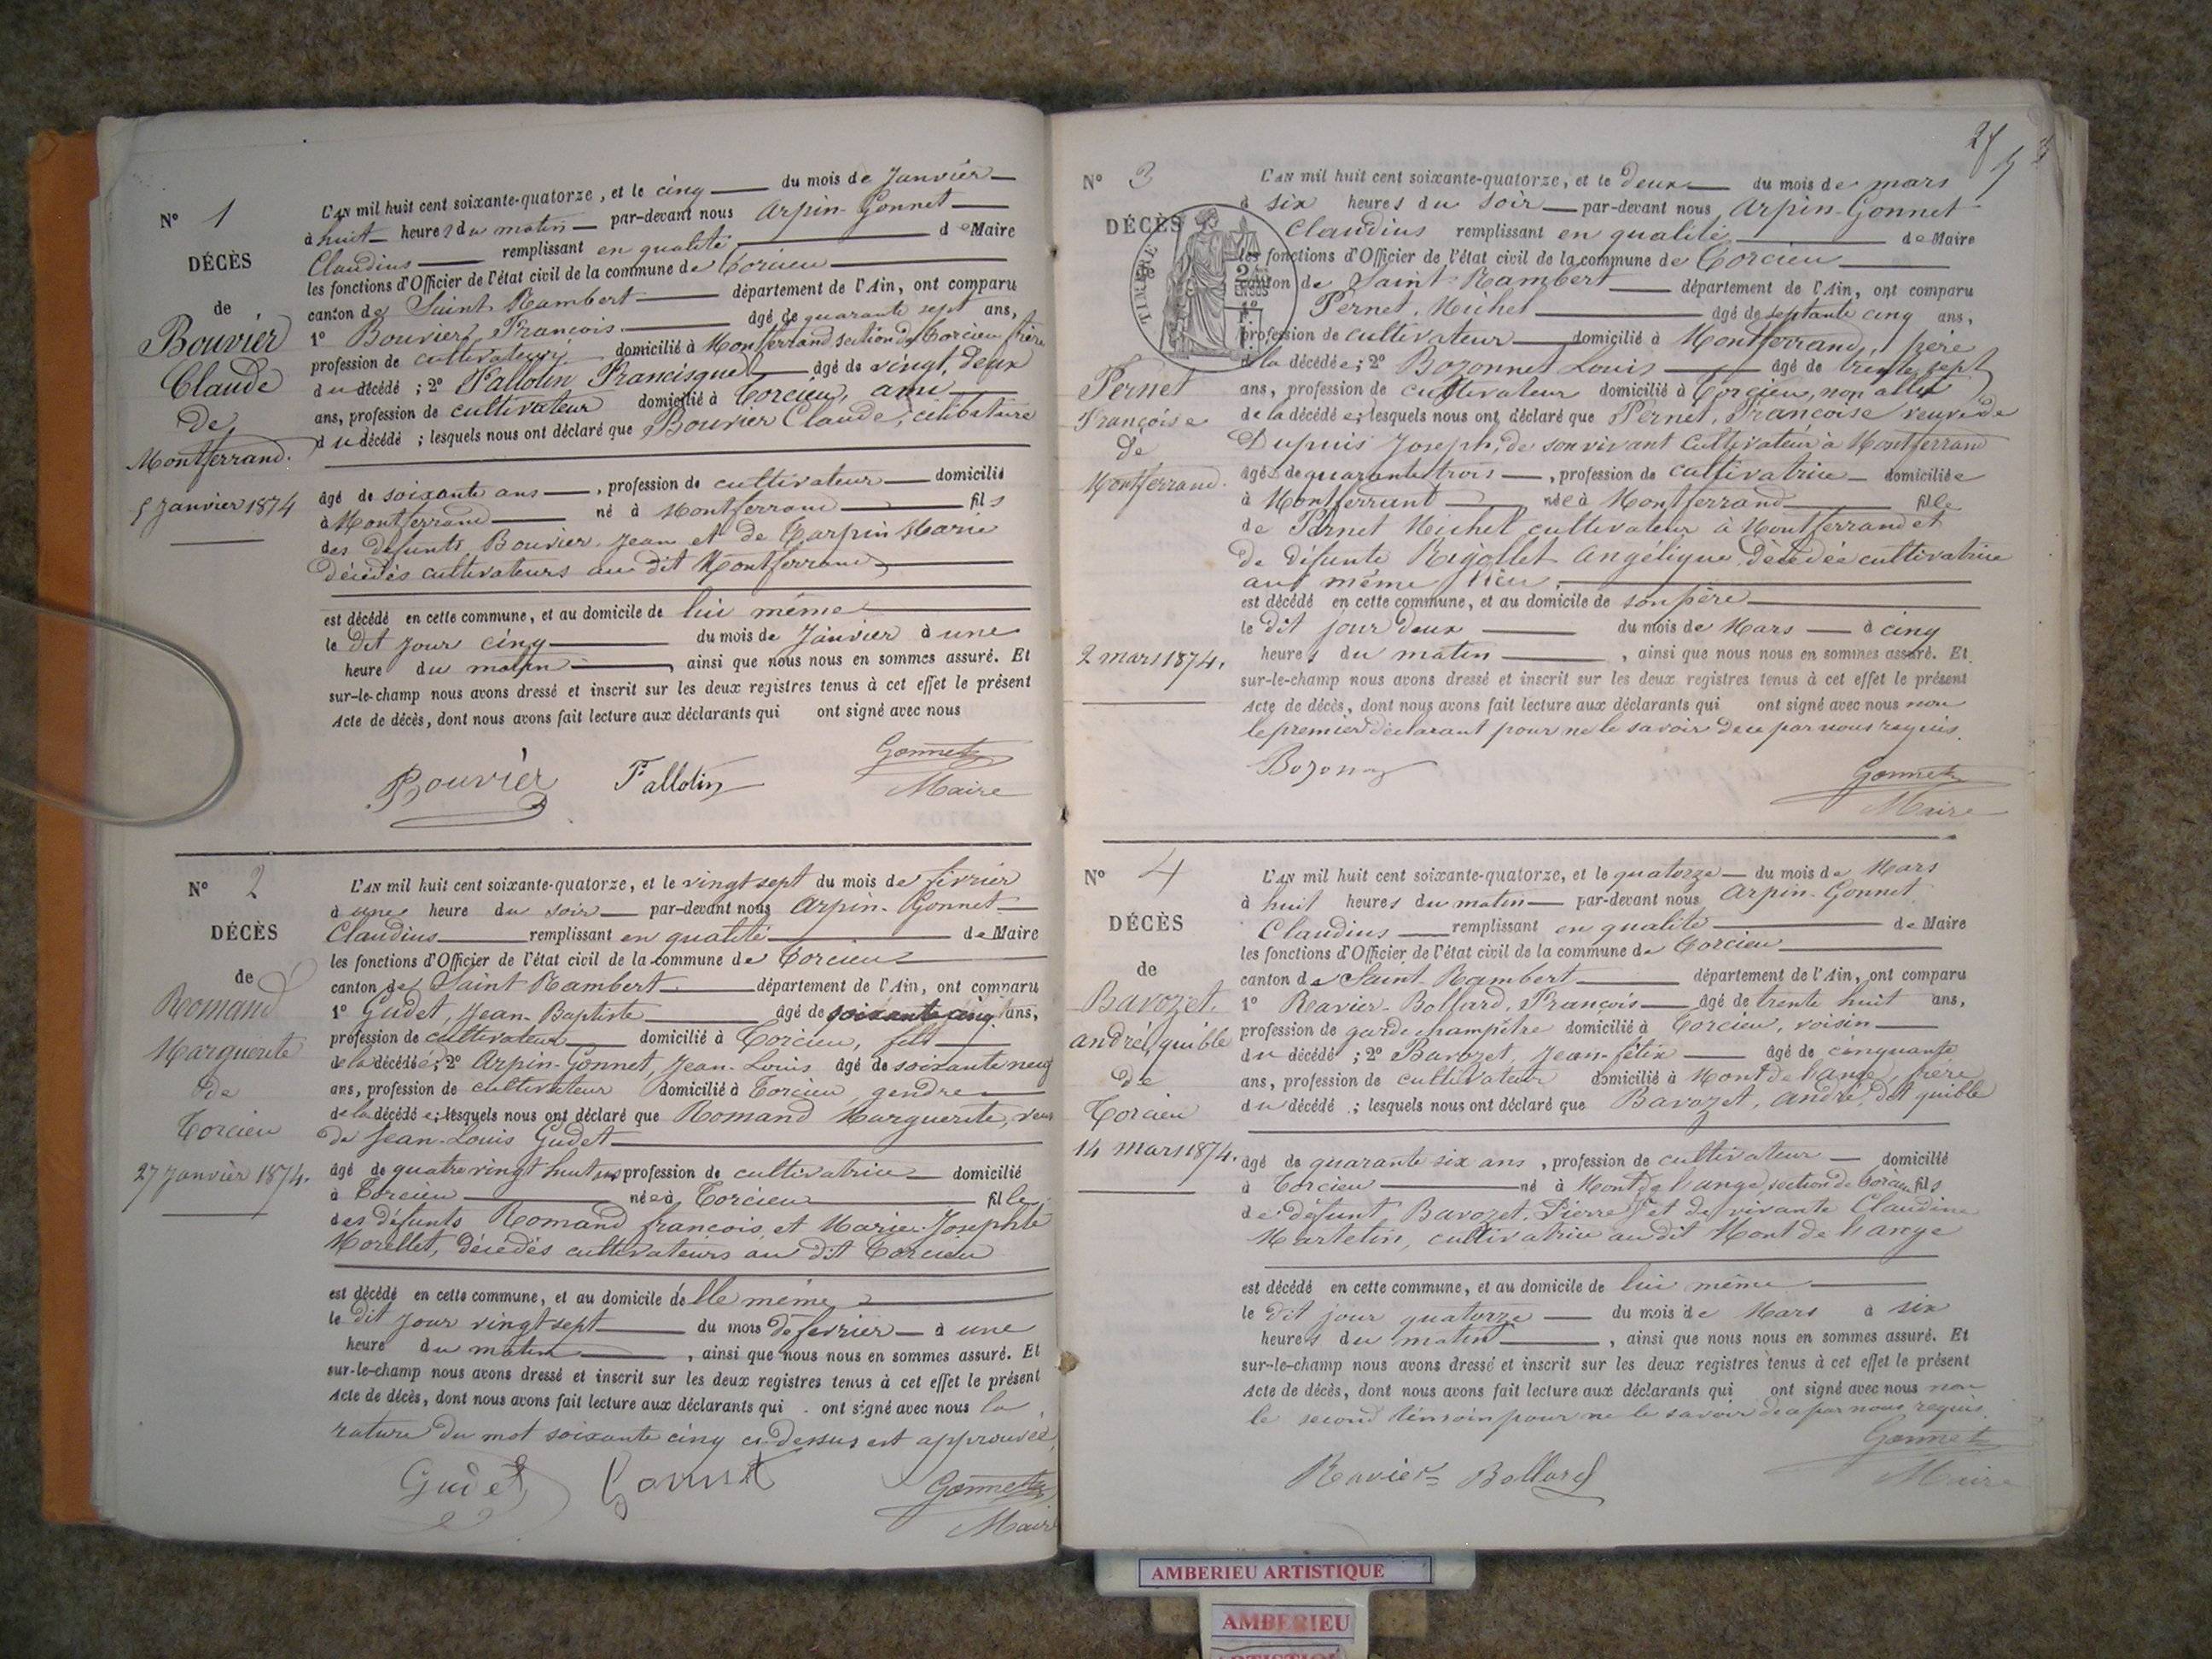 N° 1
DÉCÈS
de
Bouvier
Claude
de
Montferrand.
5 Janvier 1874
L'AN mil huit cent soixante-quatorze, et le cinq du mois de Janvier
à huit heures du matin par-devant nous Arpin-Gonnet
Claudius remplissant en qualité de Maire
les fonctions d'Officier de l'état civil de la commune de Torcieu
canton de Saint Rambert département de l'Ain, ont comparu
1° Bouvier, François âgé de quarante sept ans,
profession de cultivateur domicilié à Montferrand section de Torcieu frère
du décédé ; 2° Fallotin Francisque âgé de vingt deux
ans, profession de cultivateur domicilié à Torcieu, ami
du décédé ; lesquels nous ont déclaré que Bouvier Claude, célibataire
âgé de soixante ans, profession de cultivateur domicilié
à Montferrand né à Montferrand fils
des défunts Bouvier Jean et de Tarpin Marie
décédés cultivateurs au dit Montferrand
est décédé en cette commune, et au domicile de lui même
le dit jour cinq du mois de Janvier à une
heure du matin, ainsi que nous nous en sommes assuré. Et
sur-le-champ nous avons dressé et inscrit sur les deux registres tenus à cet effet le présent
Acte de décès, dont nous avons fait lecture aux déclarants qui ont signé avec nous
Bouvier Fallotin Gonnet
Maire
N° 2
DÉCÈS
de
Romand
Marguerite
de
Torcieu
27 Janvier 1874.
L'AN mil huit cent soixante-quatorze, et le vingt sept du mois de février
à une heure du soir par-devant nous Arpin-Gonnet
Claudius remplissant en qualité de Maire
les fonctions d'Officier de l'état civil de la commune de Torcieu
canton de Saint Rambert département de l'Ain, ont comparu
1° Gudet, Jean-Baptiste âgé de soixante cinq ans,
profession de cultivateur domicilié à Torcieu, fils
de la décédée; 2° Arpin-Gonnet, Jean-Louis âgé de soixante neuf
ans, profession de cultivateur domicilié à Torcieu, gendre
de la décédée; lesquels nous ont déclaré que Romand Marguerite, veuve
de Jean-Louis Gudet
âgé de quatre vingt huit ans profession de cultivatrice domicilié
à Torcieu née à Torcieu fille
des défunts Romand françois, et Marie-Josephte
Morellet, décédés cultivateurs au dit Torcieu
est décédé en cette commune, et au domicile d'elle même
le dit jour vingt sept du mois de fevrier à une
heure du matin, ainsi que nous nous en sommes assuré. Et
sur-le-champ nous avons dressé et inscrit sur les deux registres tenus à cet effet le présent
Acte de décès, dont nous avons fait lecture aux déclarants qui ont signé avec nous la
rature du mot soixante cinq ci-dessus est approuvée
Gudet Gonnet Gonnet
Maire
2
5
3
N° 3
DÉCÈS
de
Pernet
Françoise
de
Montferrand.
2 mars 1874.
TIMBRE
L'AN mil huit cent soixante-quatorze, et le deux du mois de mars
à six heures du soir par-devant nous Arpin-Gonnet
Claudius remplissant en qualité de Maire
les fonctions d'Officier de l'état civil de la commune de Torcieu
canton de Saint-Rambert département de l'Ain, ont comparu
1° Pernet, Michel âgé de septante cinq ans,
profession de cultivateur domicilié à Montferrand, père
de la décédée; 2° Bozonnet Louis âgé de trente sept
ans, profession de cultivateur domicilié à Torcieu, non allié
de la décédée; lesquels nous ont déclaré que Pernet, Françoise veuve de
Dupuis Joseph, de son vivant cultivateur à Montferrand
âgée de quarante trois, profession de cultivatrice domiciliée
à Montferrand née à Montferrand fille
de Pernet Michel cultivateur à Montferrand et
de défunte Rigollet Angélique décédée cultivatrice
au même lieu.
est décédé en cette commune, et au domicile de son père
le dit jour deux du mois de Mars à cinq
heures du matin, ainsi que nous nous en sommes assuré. Et
sur-le-champ nous avons dressé et inscrit sur les deux registres tenus à cet effet le présent
Acte de décès, dont nous avons fait lecture aux déclarants qui ont signé avec nous non
le premier déclarant pour ne le savoir de ce par nous requis.
Gonnet
Maire
N° 4
DÉCÈS
de
Bavozet,
andré, quible
de
Torcieu
14 mars 1874.
L'AN mil huit cent soixante-quatorze, et le quatorze du mois de Mars
à huit heures du matin par-devant nous Arpin-Gonnet
Claudius remplissant en qualité de Maire
les fonctions d'Officier de l'état civil de la commune de Torcieu
canton de Saint-Rambert département de l'Ain, ont comparu
1° Ravier-Bollard, François âgé de trente huit ans,
profession de garde champêtre domicilié à Torcieu, voisin
du décédé ; 2° Bavozet, Jean-félix âgé de cinquante
ans, profession de cultivateur domicilié à Mont de l'ange, frère
du décédé ; lesquels nous ont déclaré que Bavozet, André, dit quible
âgé de quarante six ans, profession de cultivateur domicilié
à Torcieu né à Mont de l'ange, section de Torcieu fils
de défunt Bavozet Pierre et de vivante Claudine
Martelin, cultivatrice au dit Mont de l'ange
est décédé en cette commune, et au domicile de lui même
le dit jour quatorze du mois de Mars à six
heures du matin, ainsi que nous nous en sommes assuré. Et
sur-le-champ nous avons dressé et inscrit sur les deux registres tenus à cet effet le présent
Acte de décès, dont nous avons fait lecture aux déclarants qui ont signé avec nous non
le second témoin pour ne le savoir de ce par nous requis.
Ravier-Bollard Gonnet
Maire
AMBERIEU ARTISTIQUE
AMBERIEU
ARTISTIQUE